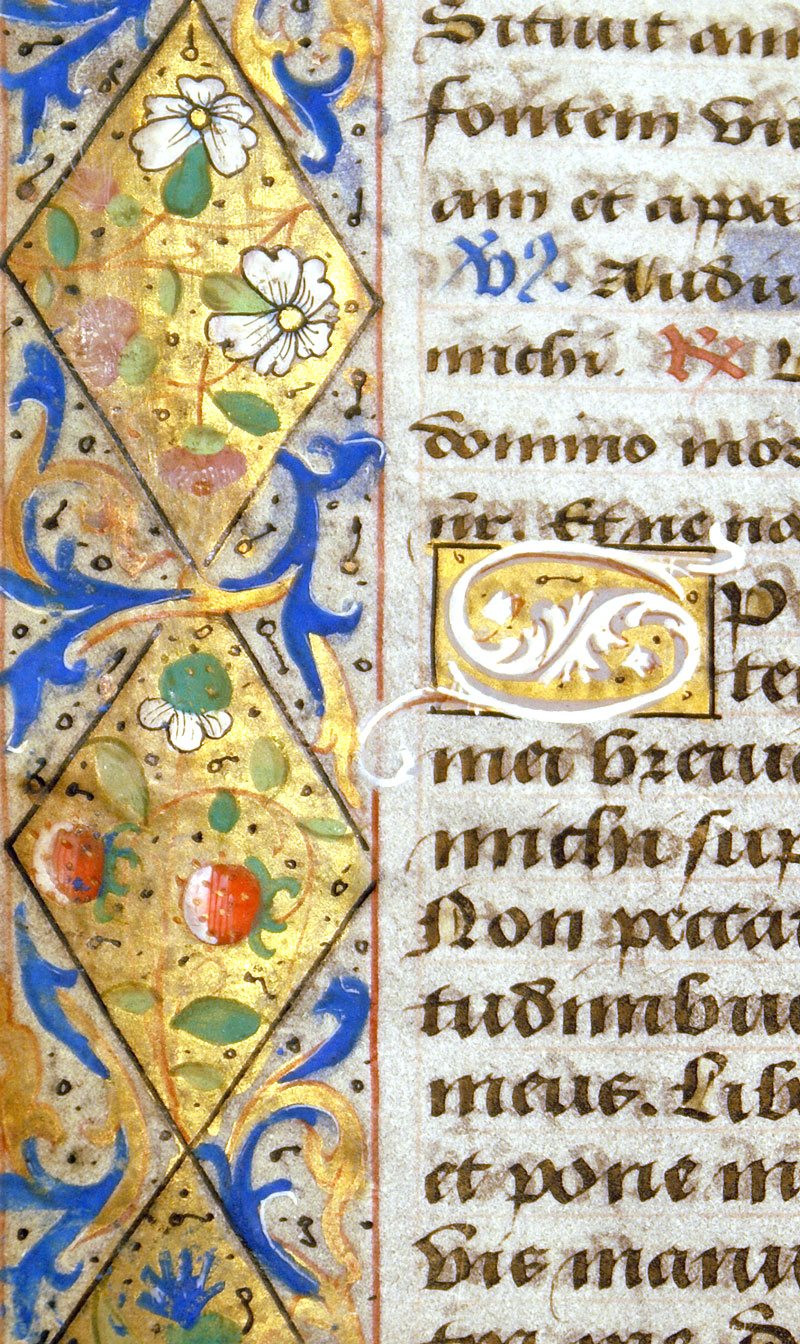 Sitiuit ani
fontem viu
am et appa
Vs. Audiu
michi. R L
domino mor
ur. Et ne no
Sp
te
mei breuia
michi sup
Non peccau
tudinibus
meus. Lib
et pone m
vis manu